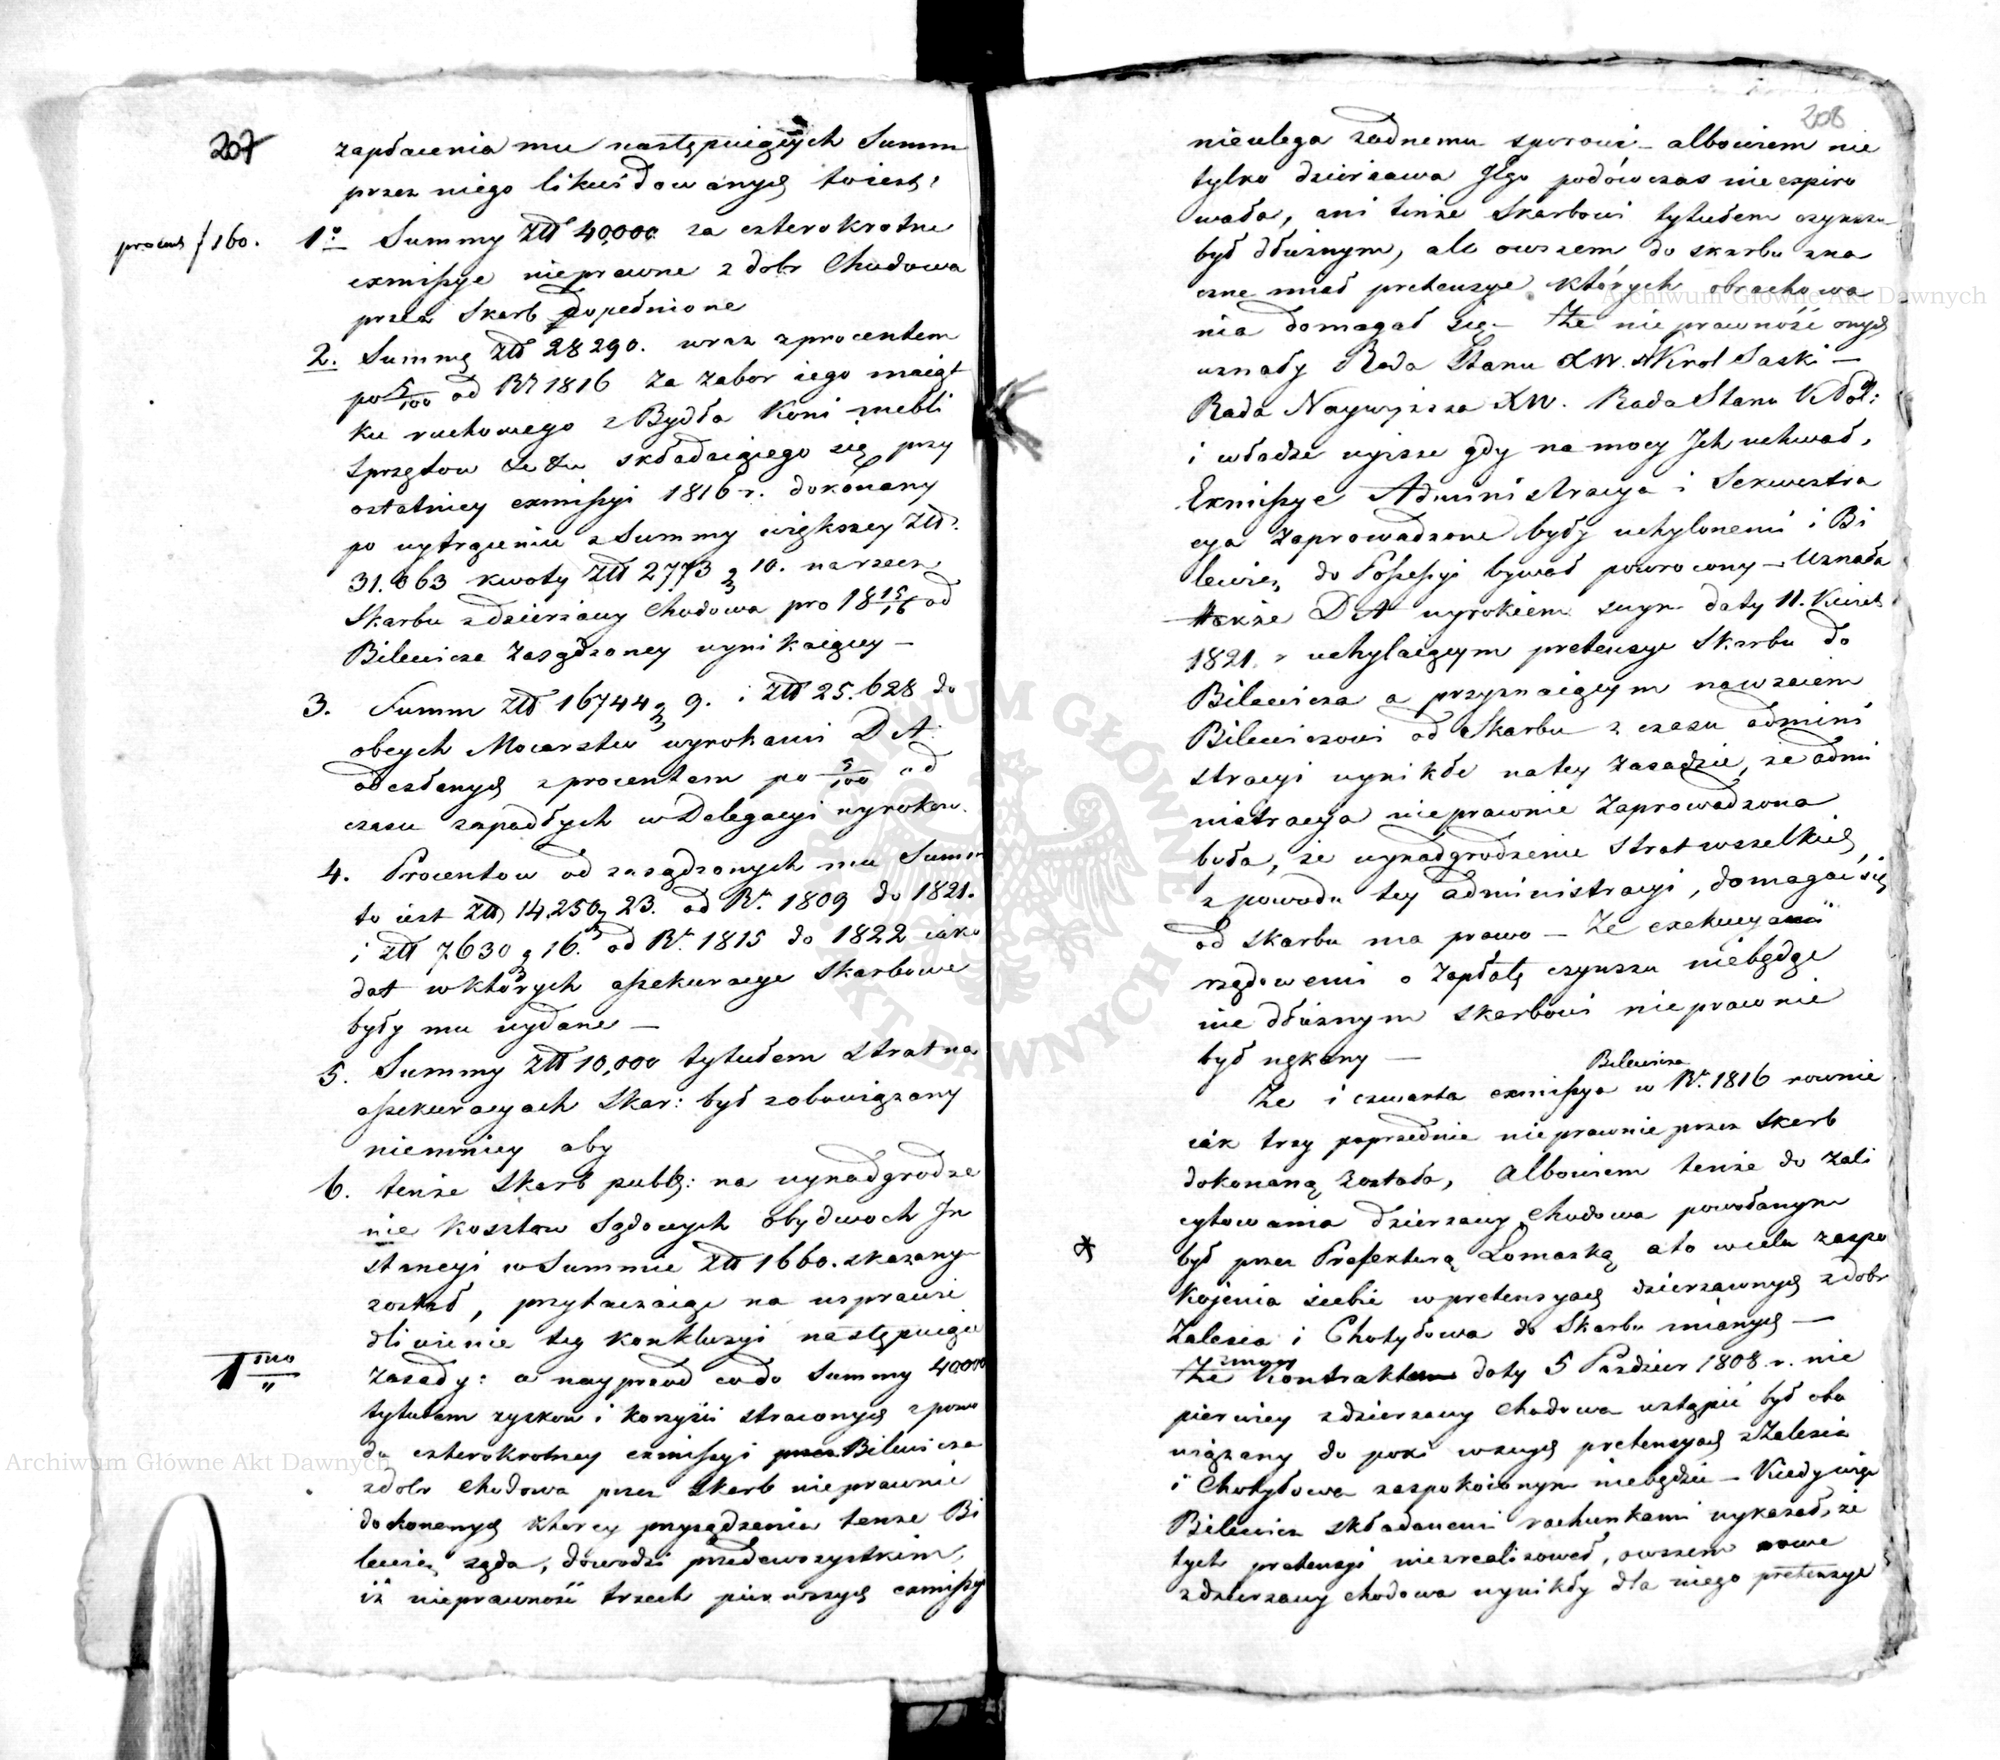 207
zapłacenia mu następuiących Summ
przez niego likwidowanych toiest,
procent f 160.
1° Summy Złł 40,000 za czterokrotne
exmissye nieprawne z dobr Chudowa
przez Skarb dopełnione
2. Summę Złł 28290. wraz z procentem
po 5/100 od Rr 1816 za zabor iego maiąt
ku ruchomego z Bydła Koni mebli
sprzętow &c &c składaiącego się przy
ostatniey exmissyi 1816 r. dokonany
po wytrąceniu z Summy większey Złł.
31.063 kwoty Złł 2773 g 10. na rzecz
Skarbu z dzierżawy Chudowa pro 18 15/16 od
Bilewicza zasądzoney wynikaiącey —
3. Summ Złł 16744 g 9. i Złł 25.628 do
obcych Mocarstw wyrokami D A.
odesłanych z procentem po 5/100 od
czasu zapadłych w Delegacyi wyrokow.
4. Procentow od zasądzonych mu Summ
to iest Złł 14,250 g 23. od Rr. 1809 do 1821.
i Złł 7630 g 16. od Rr. 1815 do 1822 iako
dat w których assekuracye Skarbowe
były mu wydane —
5. Summy Złł 10,000 tytułem strat na
assekuracyach Skar: był zobowiązany
niemniey aby
6. tenże Skarb publ: na wynadgrodze
nie kosztow Sądowych obydwoch In
stancyi w Summie Złł 1660. skazany
został, przytaczaiąc na usprawie
dliwienie tey konkluzyi następuiące
1mo
zasady: a nayprzod co do Summy 40000
tytułem zyskow i korzyści straconych z powo
du czterokrotney exmissyi Bilewicza
z dobr Chudowa przez Skarb nieprawnie
dokonanych ktorey przysądzenia tenże Bi
lewicz żąda, dowodzi przedewszystkim,
iż nieprawność trzech pierwszych exmissyi
208
nieulega żadnemu sporowi — albowiem nie
tylko dzierżawa Jego podówczas nie expiro
wała, ani tenże Skarbowi tytułem czynszu
był dłużnym, ale owszem do skarbu zna
czne miał pretensye których obrachowa
nia domagał się — Że nieprawność onych
uznały Rada Stanu XW. Krol Saski —
Rada Naywyższa XW. Rada Stanu K Pol:
i władze wyższe gdy na mocy Ich uchwał,
Exmissye Administracya i Sekwestra
cya zaprowadzone były uchylonemi i Bi
lewicz do Possessyi bywał powrocony — Uznała
także D A wyrokiem swym daty 11. Kwiet
1821. r uchylaiącym pretensye Skarbu do
Bilewicza a przyznaiącym nawzaiem
Bilewiczowi od Skarbu z czasu admini
stracyi wynikłe na tey zasadzie, że admi
nistracya nieprawnie zaprowadzona
była, że wynadgrodzenie strat wszelkich
z powodu tey administracyi, domagać się
od skarbu ma prawo — Że exekucyami
rządowemi o zapłatę czynszu niebędąc
nie dłużnym skarbowi nieprawnie
był nękany —
Bilewicza
Że i czwarta exmissya w Rr. 1816 rownie
iak trzy poprzednie nieprawnie przez Skarb
dokonaną została, albowiem tenże do zali
cytowania dzierżawy Chudowa powołanym
*
był przez Prefekturą Łomską a to w celu zaspo
kojenia siebie w pretensyach dzierżawnych z dobr
Zalesia i Chotyłowa do Skarbu mianych —
Że Kontraktem daty 5 Pazdzier 1808 r. nie
pierwiey z dzierżawy Chudowa ustąpić był obo
wiązany do poki w swych pretensyach z Zalesia
i Chotyłowa zaspokoionym niebędzie — Kiedy więc
Bilewicz składanemi rachunkami wykazał, że
tych pretensyi niezrealizował, owszem nowe
z dzierżawy Chudowa wynikły dla niego pretensye